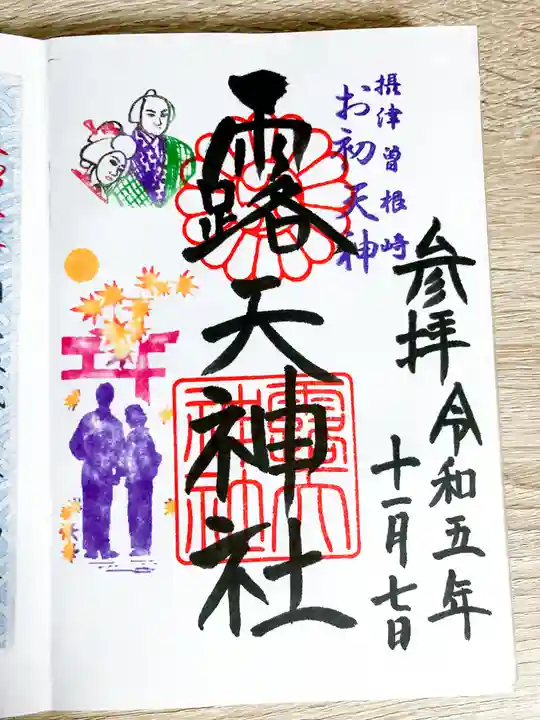 摂津曽根崎
お初天神
参拝
令和五年
十一月七日
露天神社